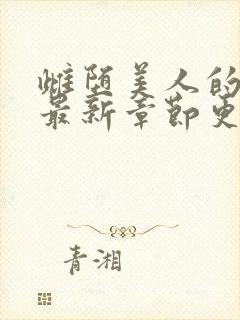 雌堕美人的
最新章节更
青湘